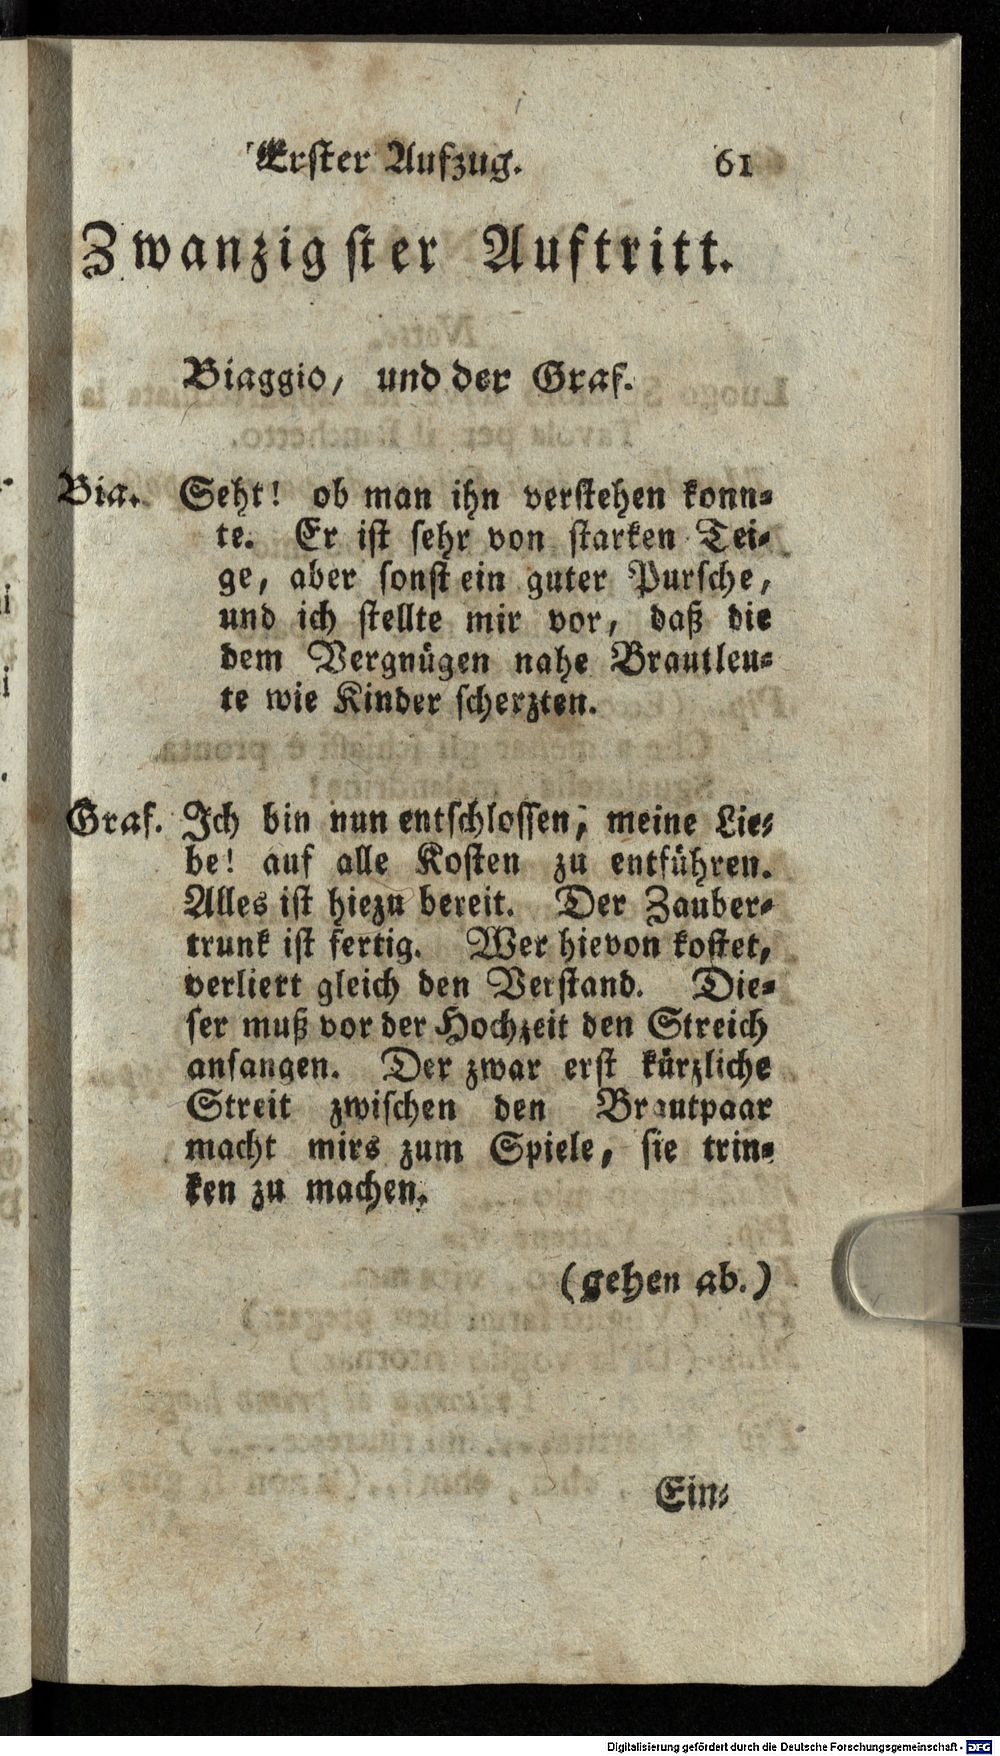 Erster Aufzug. 61
Zwanzigster Auftritt.
Biaggio, und der Graf.
Bia. Seht! ob man ihn verstehen konn-
te. Er ist sehr von starken Tei-
ge, aber sonst ein guter Pursche,
und ich stellte mir vor, daß die
dem Vergnügen nahe Brautleu-
te wie Kinder scherzten.
Graf. Ich bin nun entschlossen, meine Lie-
be! auf alle Kosten zu entführen.
Alles ist hiezu bereit. Der Zauber-
trunk ist fertig. Wer hievon kostet,
verliert gleich den Verstand. Die-
ser muß vor der Hochzeit den Streich
anfangen. Der zwar erst kürzliche
Streit zwischen den Brautpaar
macht mirs zum Spiele, sie trin-
ken zu machen.
(gehen ab.)
Ein-
Digitalisierung gefördert durch die Deutsche Forschungsgemeinschaft - DFG